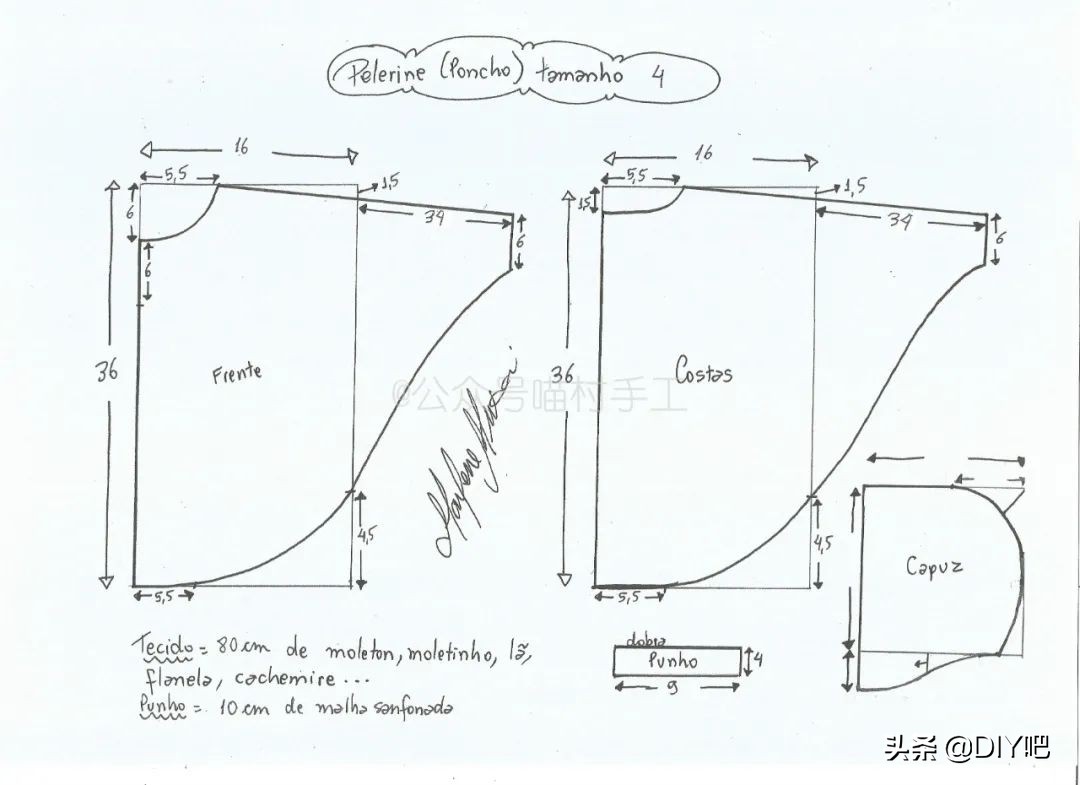 Pelerine (Poncho) tamanho 4
16
5,5
1,5
6
34
6
6
36
Frente
4,5
5,5
16
5,5
1,5
1,5
34
6
36
Costas
4,5
5,5
@公众号喵村手工
Capuz
Tecido = 80 cm de moleton, moletinho, lã,
flanela, cachemire ...
Punho = 10 cm de malha sanfonada
dobra
Punho
4
9
头条 @DIY吧